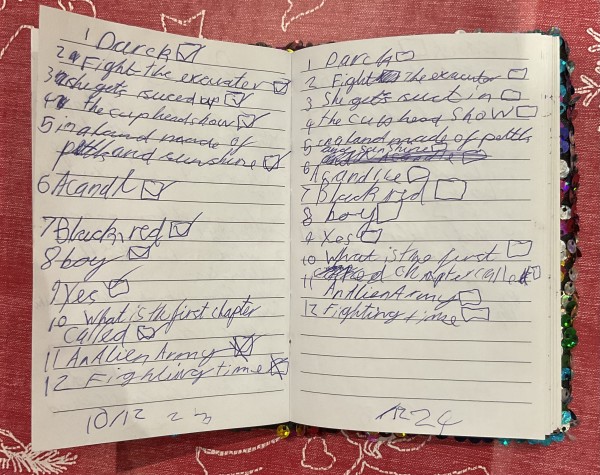 1 Darck
2 Fight the excuater
3 she gets suced up
4 the cupheadshow
5 in a land made of
and sunshine
6 Acandl
7 Black n red
8 boy
9 Yes
10 What is the first chapter
called
11 An Alien Army
12 Fighting time
10/12 2 3
1 Darck
2 Fight The
3 She gets suct in
4 the cup head show
5 in a land made of
and sunshine
6 A candle
7 Black red
8 boy
9 Yes
10 What is the first
chapter called
11 An Alien Army
12 Fighting time
24